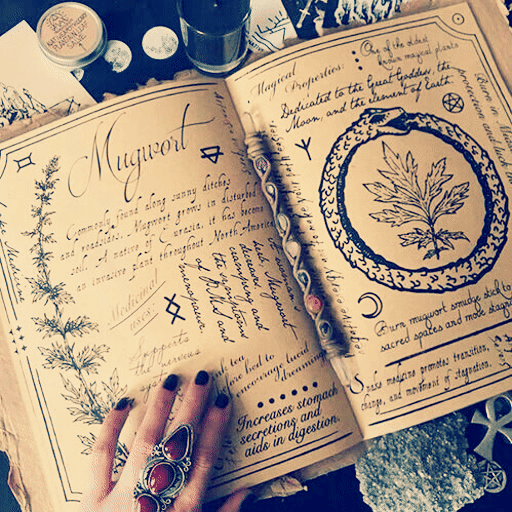 Mugwort
Commonly found along sunny ditches
and roadsides, Mugwort grows in disturbed
soils. A native of Eurasia, it has become
an invasive plant throughout North America.
Medicinal
uses:
Supports
the nervous
tea
before bed to
encourage lucid
dreaming.
Mugwort
cramping and
the symptoms
of PMS and
menopause.
Increases stomach
secretions and
aids in digestion.
Magical
Properties:
One of the oldest
known magical plants
Dedicated to the Great Goddess, the
Moon, and the element of Earth.
Burn in
protection and
Burn mugwort smudge stick to
sacred spaces and move
Snake medicine promotes transition,
change, and movement of stagnation.